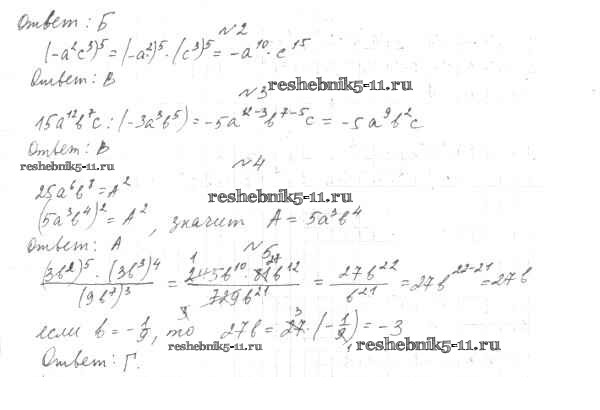 Ответ: Б
№2
(-a²c³)⁵ = (-a²)⁵ · (c³)⁵ = -a¹⁰ · c¹⁵
Ответ: В
reshebnik5-11.ru
№3
15a¹²b⁷c : (-3a³b⁵) = -5a¹²⁻³b⁷⁻⁵c = -5a⁹b²c
Ответ: В
reshebnik5-11.ru
№4
25a⁶b⁸ = A²
reshebnik5-11.ru
(5a³b⁴)² = A², значит A = 5a³b⁴
Ответ: А
№5
(3b²)⁵ · (3b³)⁴ / (9b⁷)³ = 243b¹⁰ · 81b¹² / 729b²¹ = 27b²² / b²¹ = 27b²²⁻²¹ = 27b
если b = -1/9, то 27b = 27 · (-1/9) = -3
reshebnik5-11.ru
reshebnik5-11.ru
Ответ: Г.